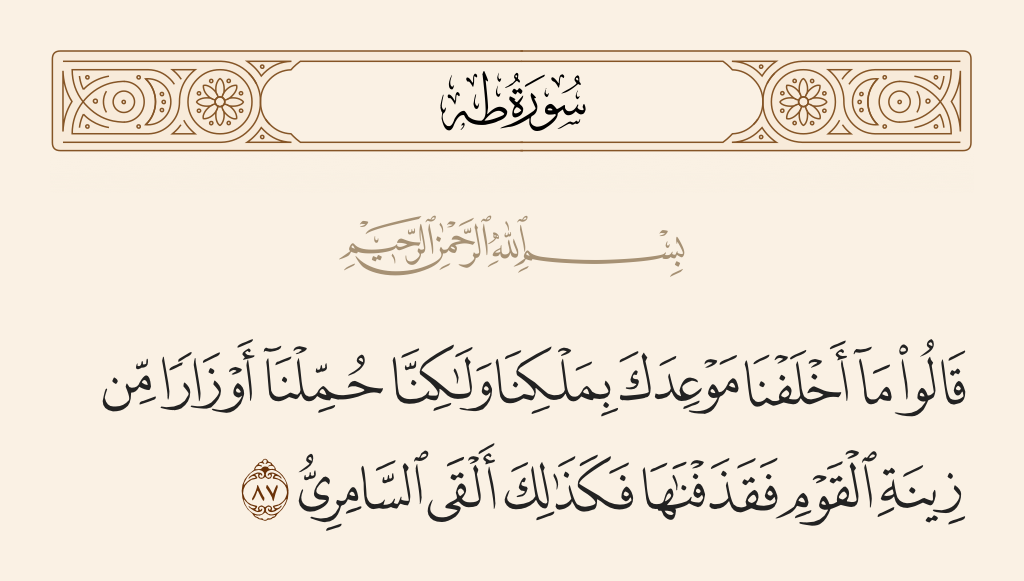 سُورَةُ طه
بِسْمِ ٱللَّهِ ٱلرَّحْمَٰنِ ٱلرَّحِيمِ
قَالُوا۟ مَآ أَخْلَفْنَا مَوْعِدَكَ بِمَلْكِنَا وَلَـٰكِنَّا حُمِّلْنَآ أَوْزَارًا مِّن
زِينَةِ ٱلْقَوْمِ فَقَذَفْنَـٰهَا فَكَذَٰلِكَ أَلْقَى ٱلسَّامِرِىُّ ٨٧